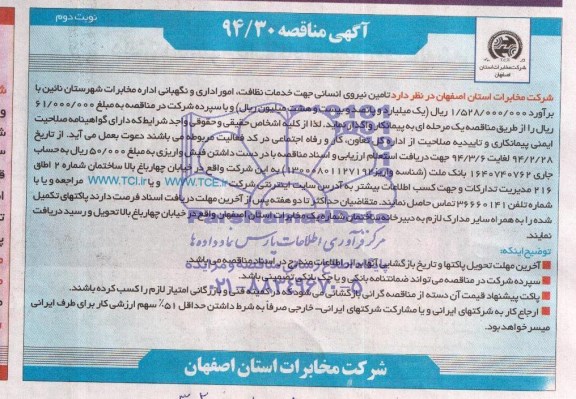 نوبت دوم
آگهی مناقصه ۹۴/۳۰
شرکت مخابرات استان
اصفهان
شرکت مخابرات استان اصفهان در نظر دارد تامین نیروی انسانی جهت خدمات نظافت، اموراداری و نگهبانی اداره مخابرات شهرستان نائین با
برآورد ۱/۵۲۸/۰۰۰/۰۰۰ ریال (یک میلیارد و پانصد و بیست و هشت میلیون ریال) و با سپرده شرکت در مناقصه به مبلغ ۶۱/۰۰۰/۰۰۰
ریال را از طریق مناقصه یک مرحله ای به پیمانکار واگذار نماید. لذا از کلیه اشخاص حقیقی و حقوقی واجد شرایط که دارای گواهینامه صلاحیت
ایمنی پیمانکاری و تاییدیه صلاحیت از اداره کل تعاون، کار و رفاه اجتماعی در کد فعالیت مربوطه می باشند دعوت بعمل می آید. از تاریخ
۹۴/۲/۲۸ لغایت ۹۴/۳/۶ جهت دریافت استعلام ارزیابی و اسناد مناقصه با در دست داشتن فیش واریزی به مبلغ ۵۰/۰۰۰ ریال به حساب
جاری ۱۶۴۰۷۴۰۷۶۲ بانک ملت (شناسه واریز ۱۳۰۰۰۸۰۱۱۲۷۱۹۱) به این شرکت واقع در خیابان چهارباغ بالا ساختمان شماره ۲ اطاق
۲۱۶ مدیریت تدارکات و جهت کسب اطلاعات بیشتر به آدرس سایت اینترنتی شرکت WWW.TCE.ir و یا WWW.TCI.ir مراجعه و یا با
شماره تلفن ۳۶۶۶۰۱۴۱ تماس حاصل نمایند. متقاضیان حداکثر تا دو هفته پس از آخرین مهلت دریافت اسناد فرصت دارند پاکتهای تکمیل
شده را به همراه سایر مدارک لازم به دبیرخانه ساختمان شماره یک مخابرات استان اصفهان واقع در خیابان چهارباغ بالا تحویل و رسید دریافت
نمایند.
توضیح اینکه:
آخرین مهلت تحویل پاکتها و تاریخ بازگشایی آنها برابر اطلاعات مندرج در اسناد مناقصه می باشد.
سپرده شرکت در مناقصه می تواند ضمانتنامه بانکی و یا چک بانکی تضمینی باشد.
پاکت پیشنهاد قیمت آن دسته از مناقصه گرانی بازگشایی می شود که در کمیته فنی و بازرگانی امتیاز لازم را کسب کرده باشند.
ارجاع کار به شرکتهای ایرانی و یا مشارکت شرکتهای ایرانی- خارجی صرفاً به شرط داشتن حداقل ۵۱٪ سهم ارزشی کار برای طرف ایرانی
میسر خواهد بود.
شرکت مخابرات استان اصفهان
مرکز فرآوری اطلاعات پارس نماد داده ها
۰۲۱-۸۸۳۴۹۶۷۰-۵